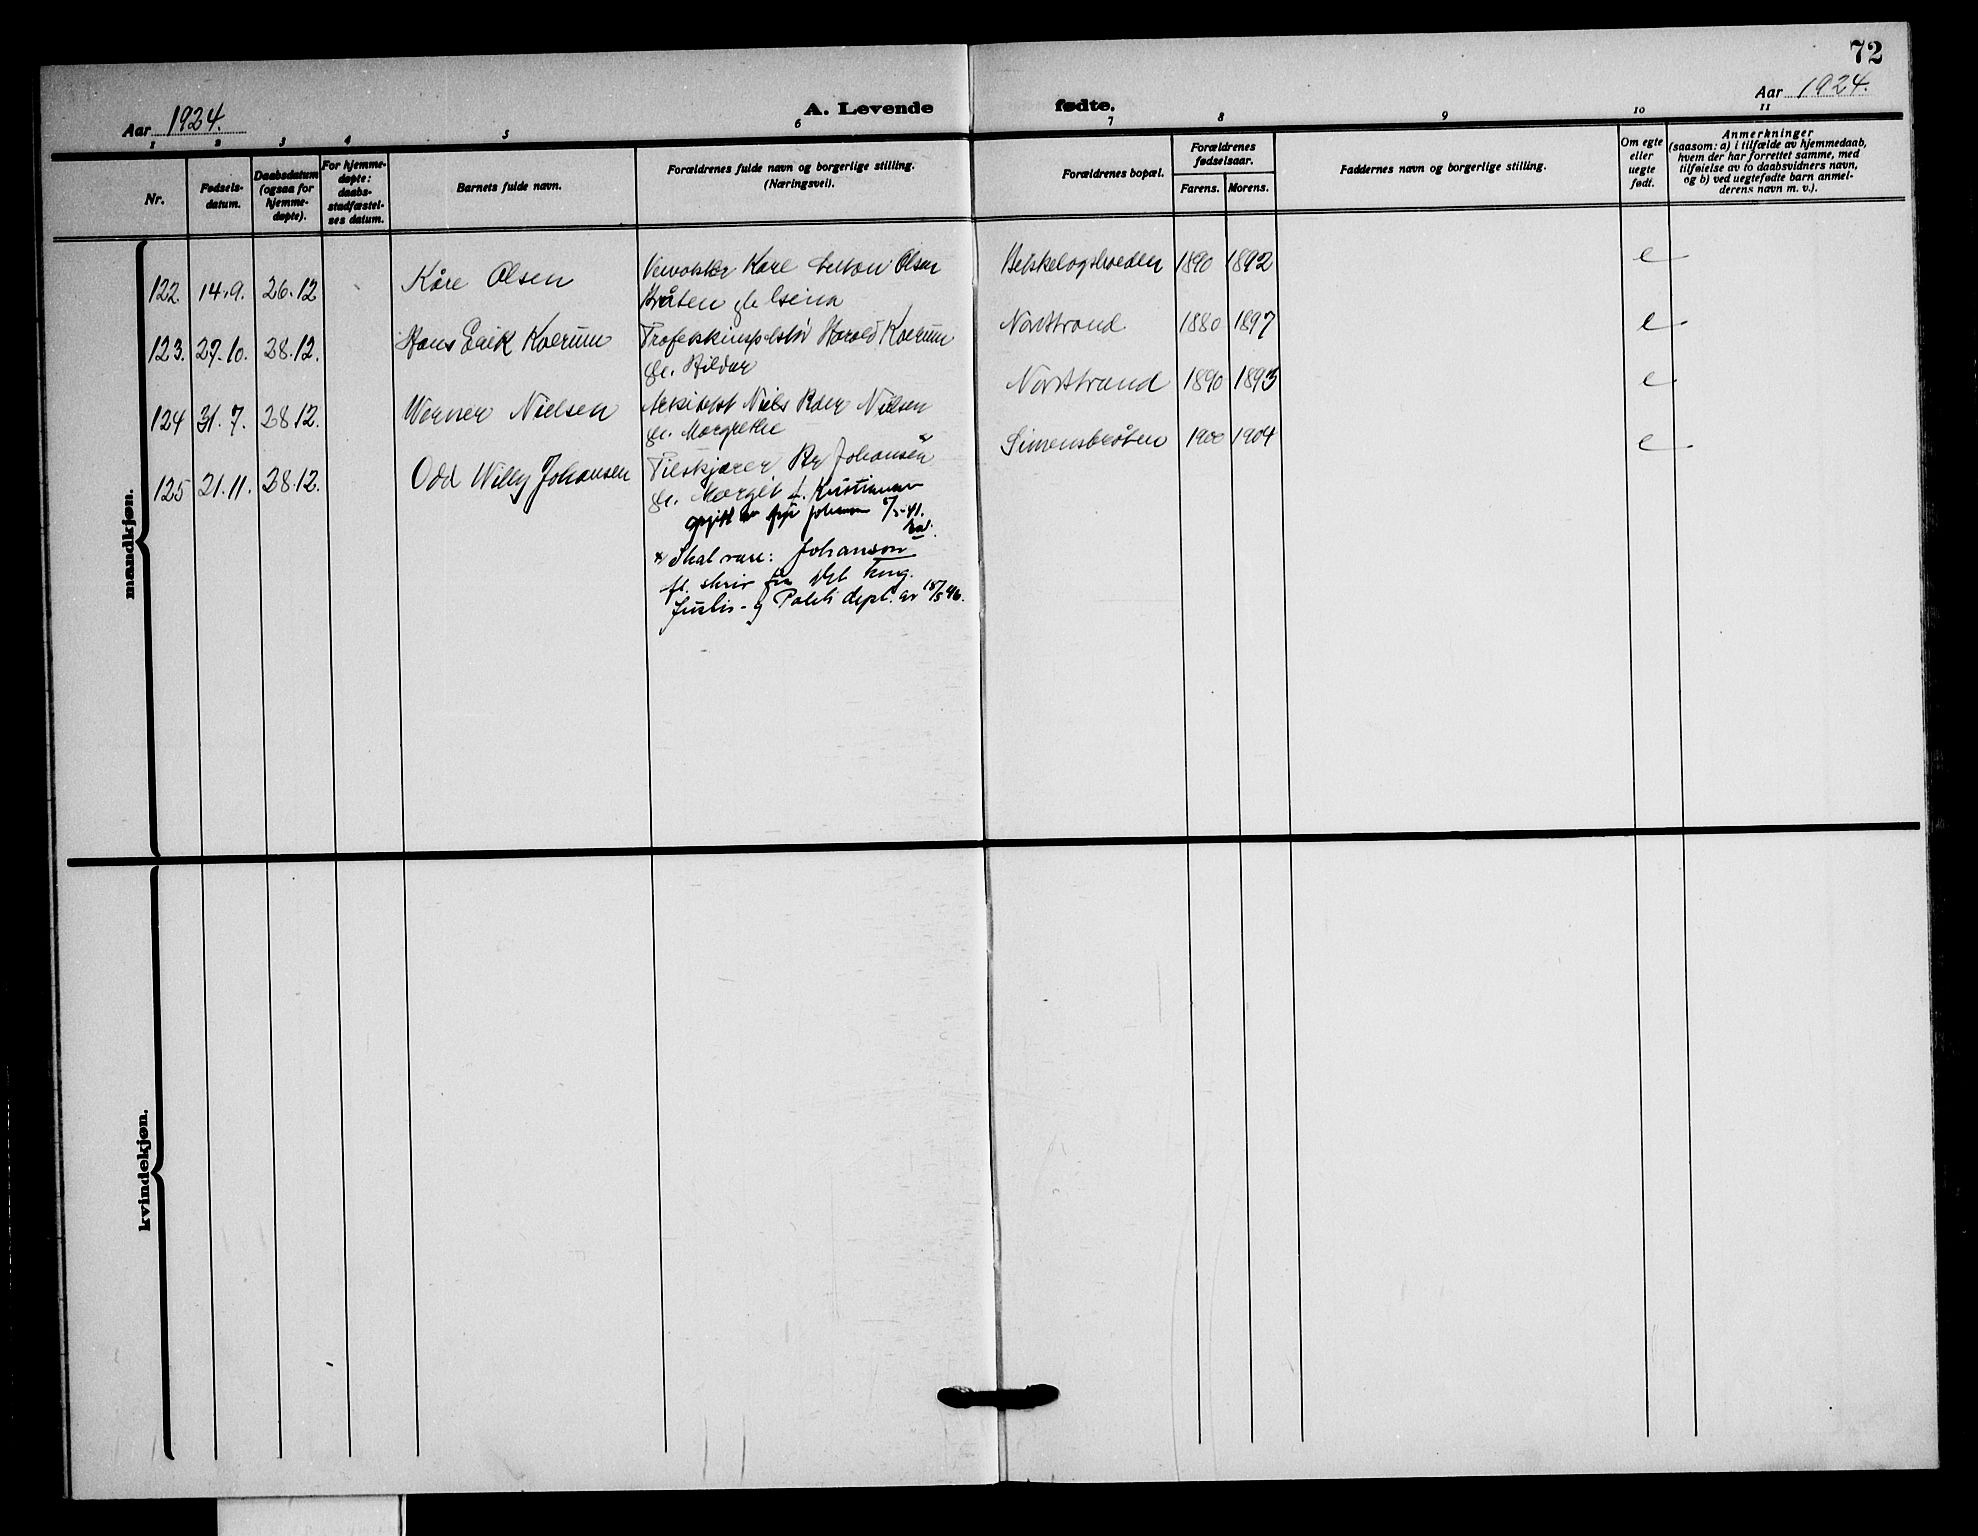 72
Aar 1924.
A. Levende fødte.
Aar 1924.
1 2 3 4 5 6 7 8 9 10 11
Nr.
Fødsels-
datum.
Daabsdatum
(ogsaa for
hjemme-
døpte).
For hjemme-
døpte:
daabs-
stadfæstel-
ses datum.
Barnets fulde navn.
Forældrenes fulde navn og borgerlige stilling.
(Næringsvei).
Forældrenes bopæl.
Forældrenes
fødselsaar.
Farens. Morens.
Faddernes navn og borgerlige stilling.
Om egte
eller
uegte
født.
Anmerkninger
(saasom: a) i tilfælde av hjemmedaab,
hvem der har forrettet samme, med
tilføielse av to daabsvidners navn,
og b) ved uegtefødte barn anmel-
derens navn m. v.).
mandkjøn.
122. 14.9. 26.12 Kåre Olsen
Karl Anton Olsen
Bråten
1890 1892 e
123. 27.10. 28.12. Hans Erik Kverum
Harald Kverum
fr. Hildur
Norstrand 1880 1897 e
124 31.7. 28.12. Werner Nielsen
Arkitekt Niels Nielsen
fr. Margrethe
Norstrand 1890 1893 e
125 21.11. 28.12. Odd Willy Johansen
Filskjærer Johansen
fr. Margit f. Kristiansen
Simensbråten 1900 1904 e
x Skal være: Johanson
fl. skriv fra Det kng.
Justis- og Politi dept. av 18/5 46.
kvindekjøn.